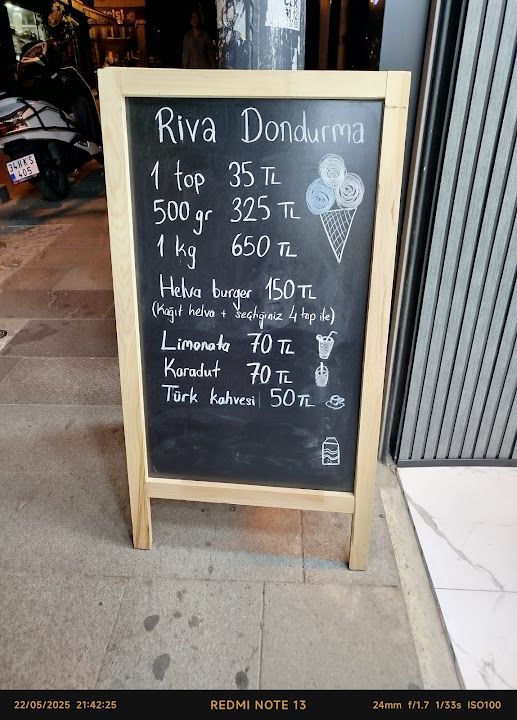 Riva Dondurma
1 top 35 TL
500 gr 325 TL
1 kg 650 TL
Helva burger 150 TL
(Kağıt helva + seçtiğiniz 4 top ile)
Limonata 70 TL
Karadut 70 TL
Türk kahvesi 50 TL
34HKS
405
22/05/2025 21:42:25
REDMI NOTE 13
24mm f/1.7 1/33s ISO100